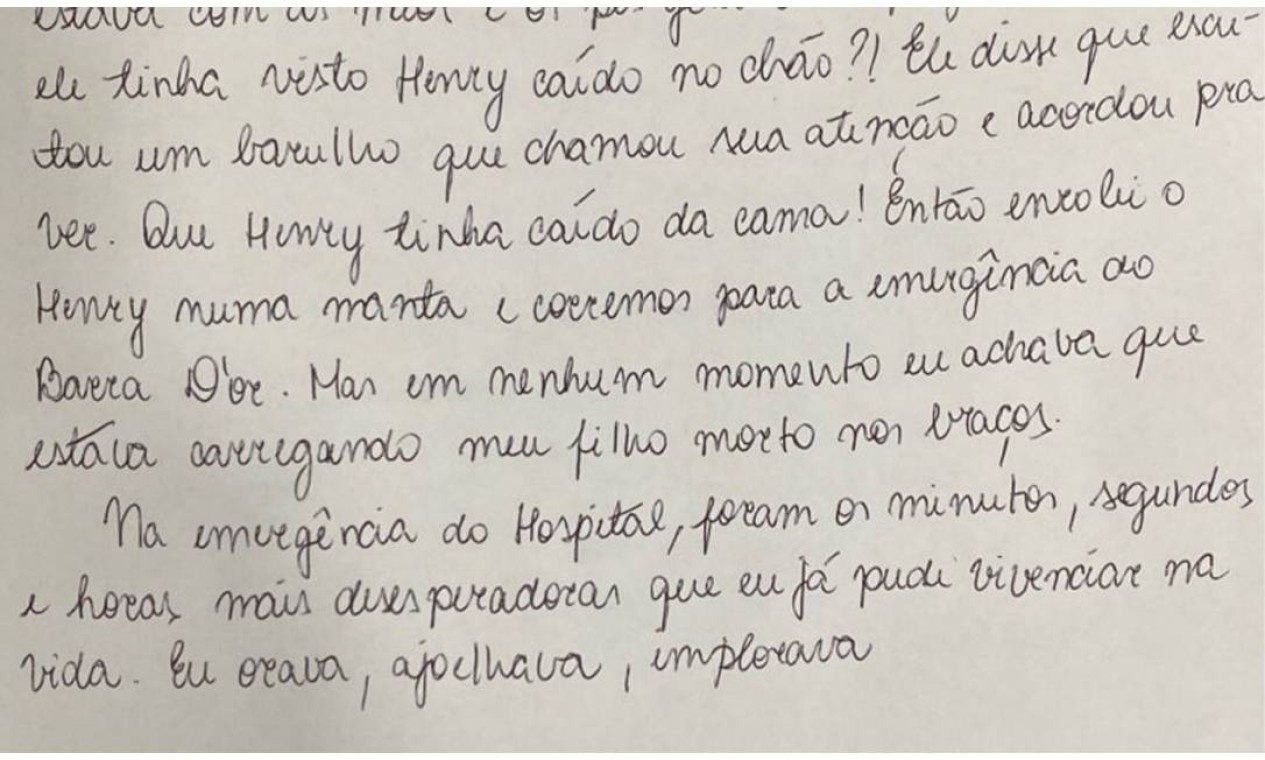 estava com as mãos e os
ele tinha visto Henry caído no chão?! Ele disse que escu-
tou um barulho que chamou sua atenção e acordou pra
ver. Que Henry tinha caído da cama! Então enrolei o
Henry numa manta e corremos para a emergência ao
Barra D'or. Mas em nenhum momento eu achava que
estava carregando meu filho morto nos braços.
Na emergência do Hospital, foram os minutos, segundos
e horas mais desesperadoras que eu já pude vivenciar na
vida. Eu orava, ajoelhava, implorava